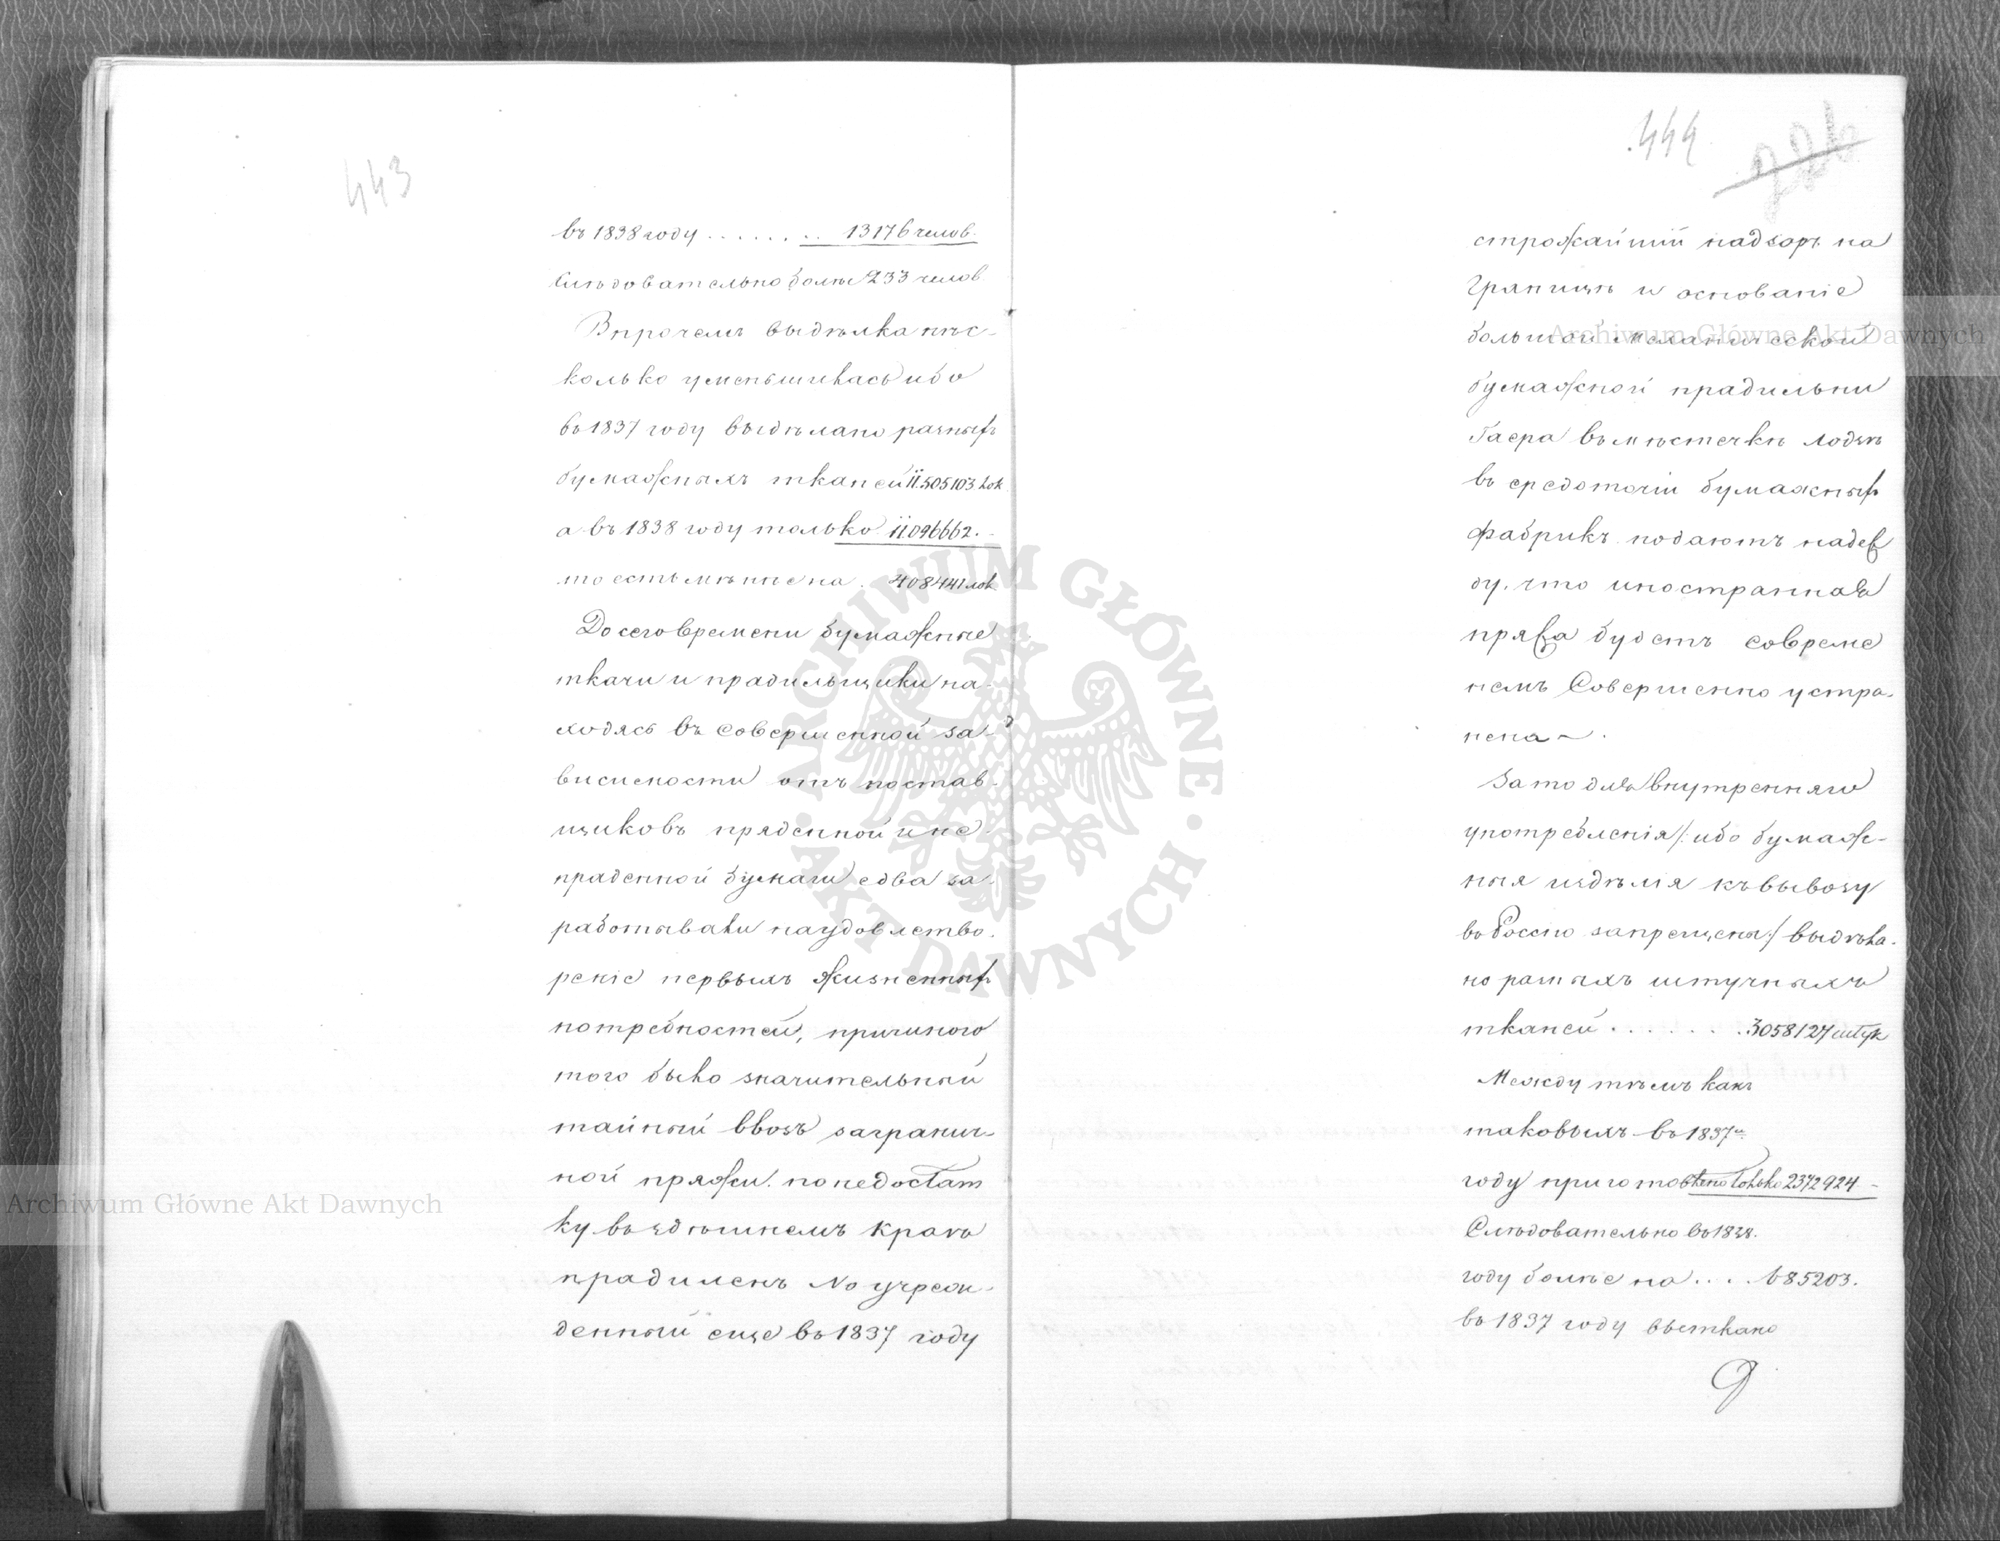 443
въ 1838 году . . . . . . . . 13176 челов.
Слѣдовательно болѣе 233 челов
Впрочемъ выдѣлка нѣс-
колько уменьшилась ибо
въ 1837 году выдѣлано разныхъ
бумажныхъ тканей 11.505103 лок
а въ 1838 году только 11.096662. -
то есть мѣнѣе на . 408441 лок
До сего времени бумажные
ткачи и прядильщики на-
ходясь въ совершенной за-
висимости отъ постав-
щиковъ пряденной и не-
пряденной бумаги едва за-
работывали на удовлетво-
реніе первыхъ жизненныхъ
потребностей, причиною
того было значительный
тайный ввозъ загранич-
ной пряжи. по недостат
ку въ здѣшнемъ краѣ
прядиленъ. Но учреж-
денный еще въ 1837 году
444
226
строжайшій надзоръ на
Границѣ и основаніе
большой Механической
бумажной прядильни
Гаера въ мѣстечкѣ Лодзѣ
въ средоточіи бумажныхъ
фабрикъ подаютъ надеж
ду, что иностранная
пряжа будетъ совреме
немъ Совершенно устра-
нена - .
Зато для внутренняго
употребленія /: ибо бумаж-
ныя издѣлія къ вывозу
въ Россію запрещены :/ выдѣла-
но разныхъ штучныхъ
тканей . . . . . . . 3058127 штук
Между тѣмъ какъ
таковыхъ въ 1837м
году приготовлено только 2372924 -
Слѣдовательно въ 1838.
году болѣе на . . . 685203.
въ 1837 году выткано
Archiwum Główne Akt Dawnych
Archiwum Główne Akt Dawnych
ARCHIWUM GŁÓWNE · AKT DAWNYCH ·